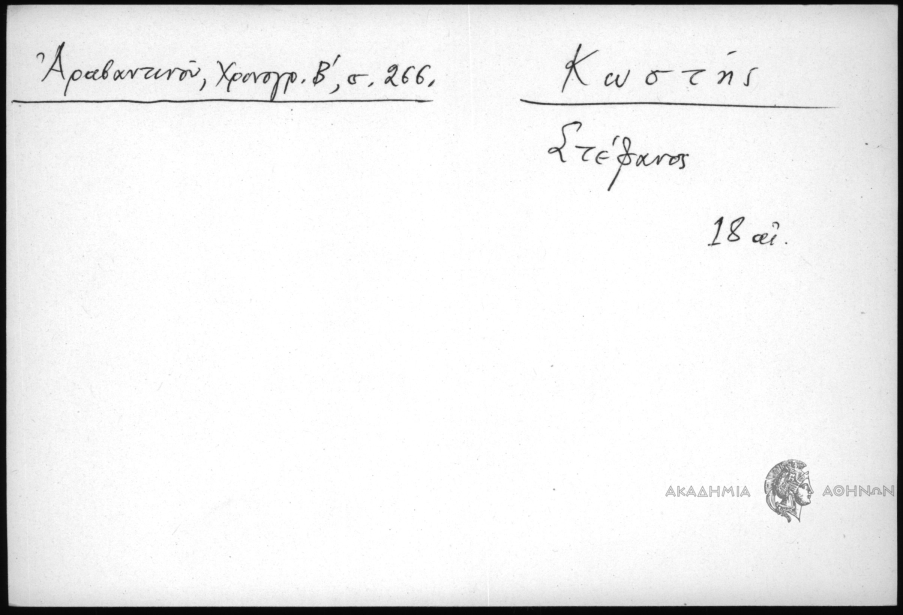 Ἀραβαντινοῦ, Χρονογρ. Β΄, σ. 266.
Κωστής
Στέφανος
18 αἰ.
ΑΚΑΔΗΜΙΑ ΑΘΗΝΩΝ